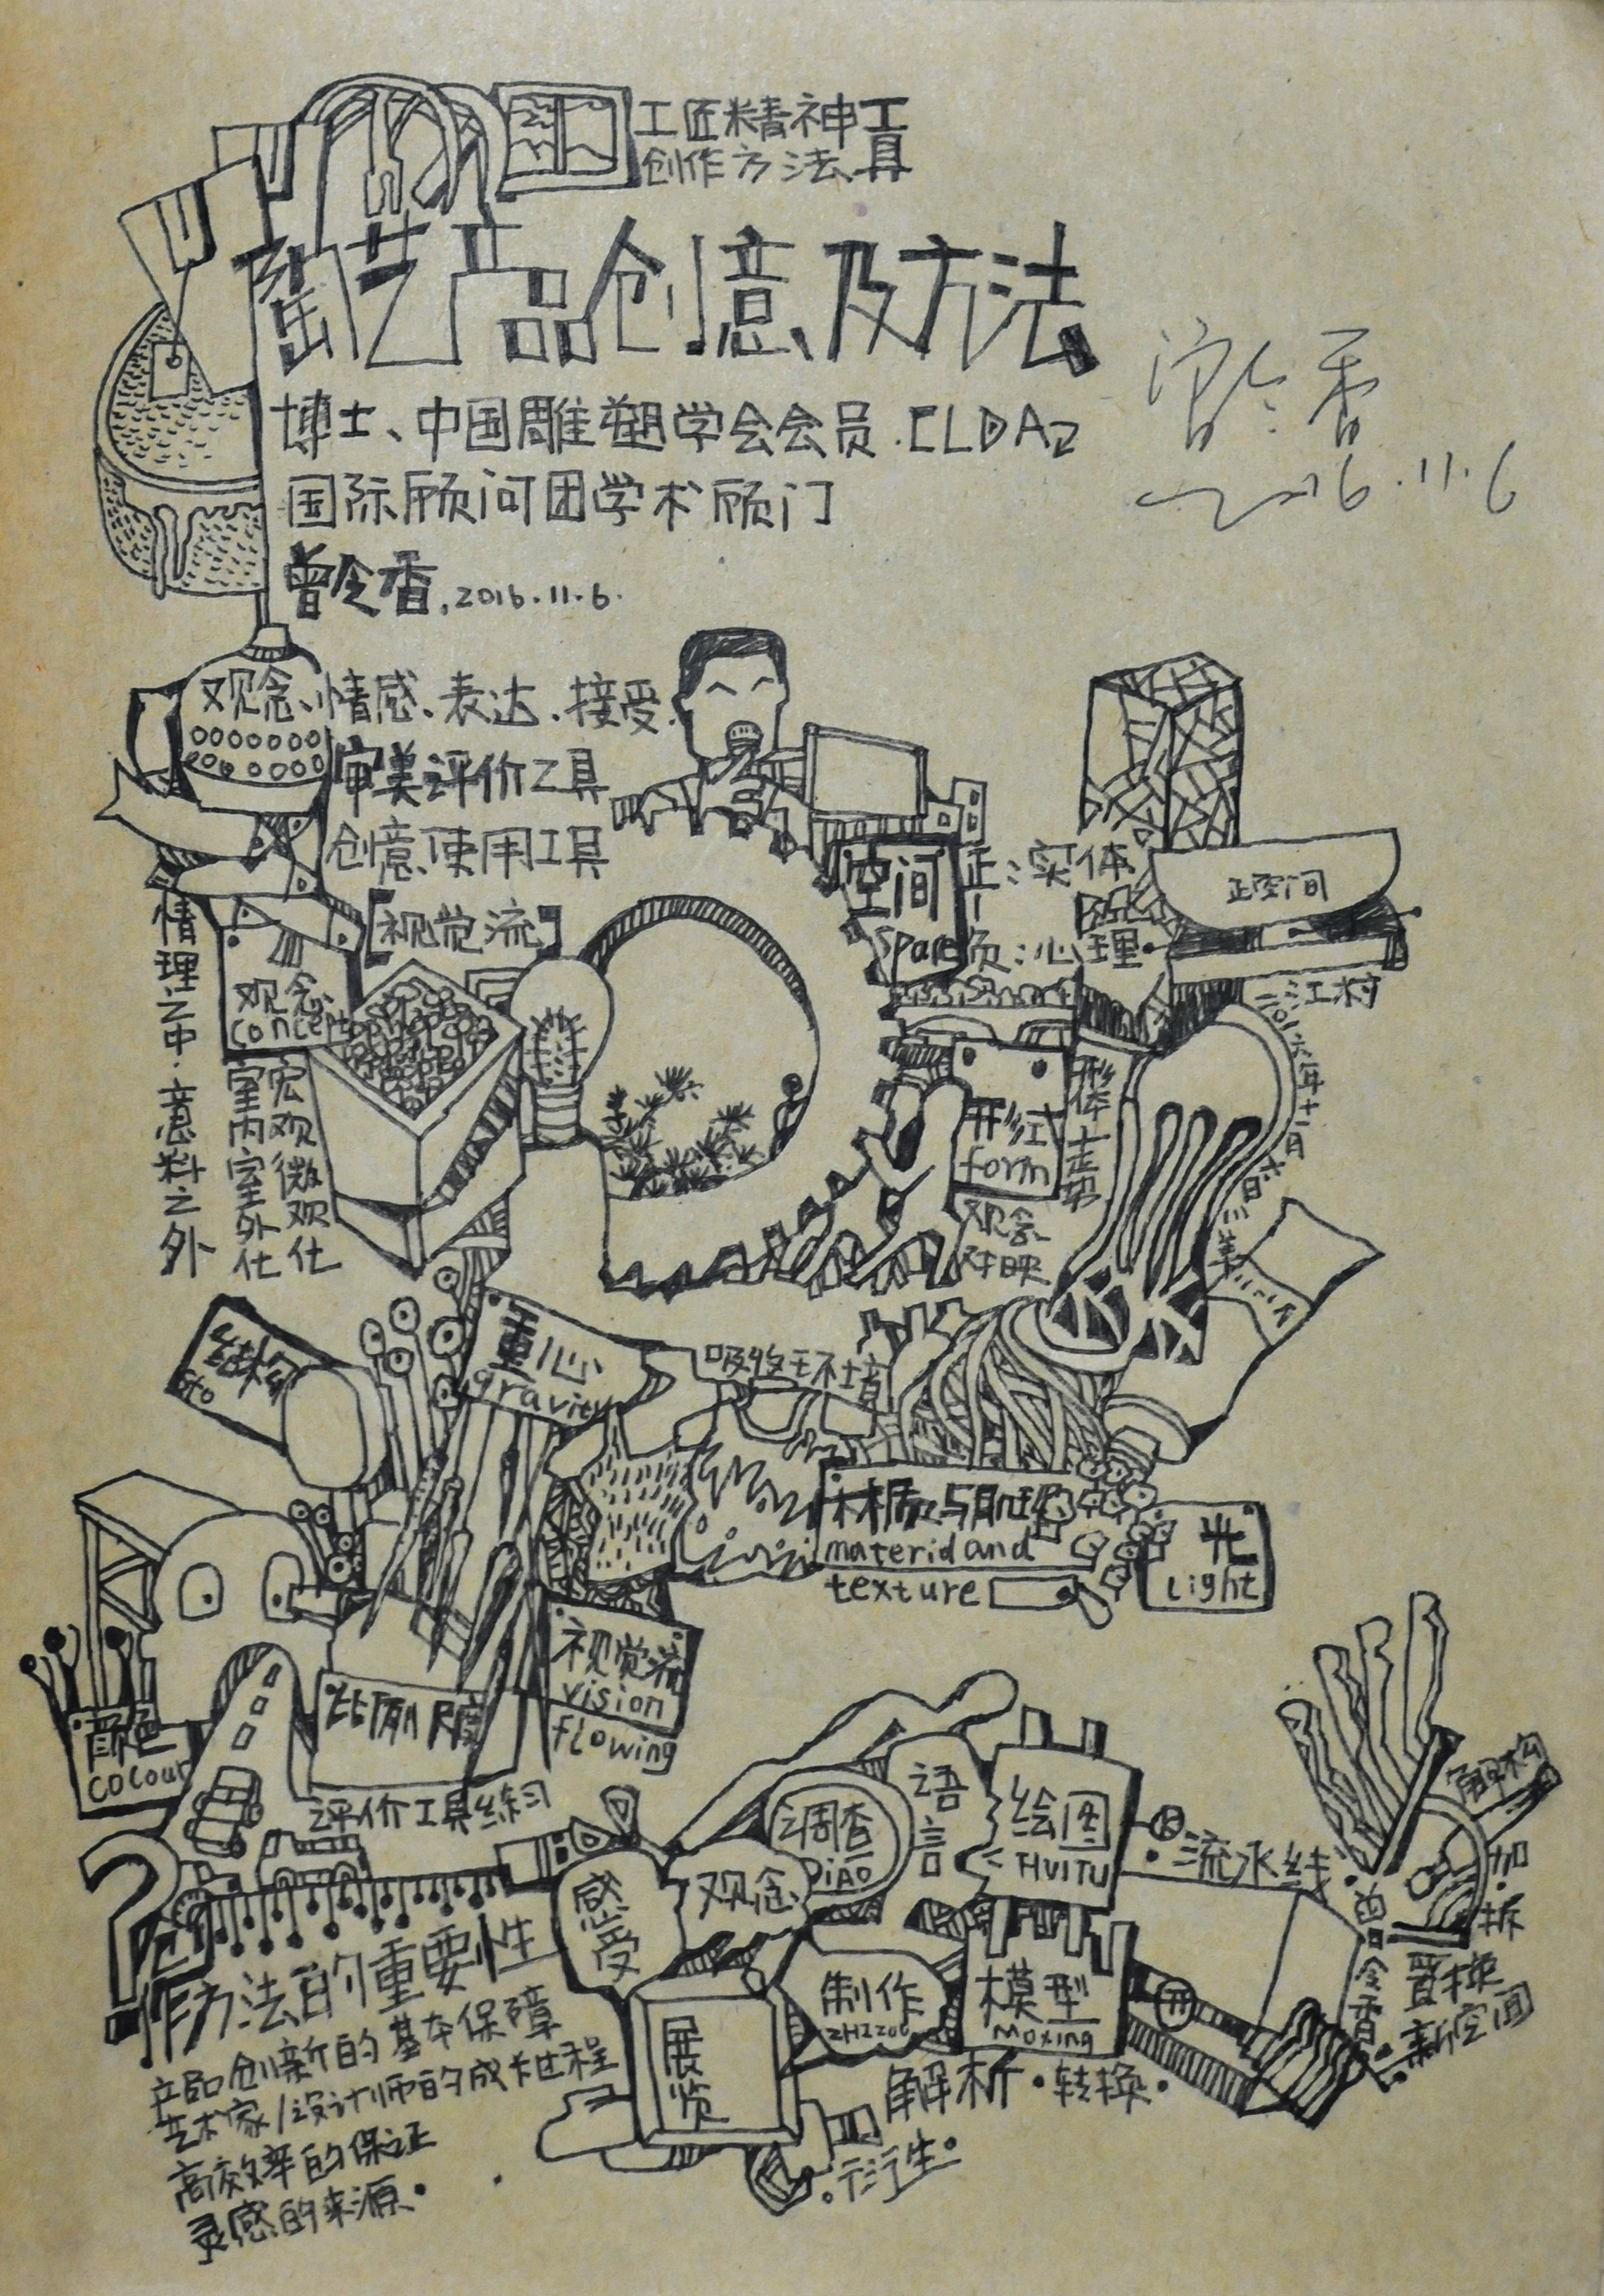 工匠精神工具
创作方法
陶艺产品创意及方法
博士、中国雕塑学会会员.CLDA2
国际顾问团学术顾门
曾令香.2016.11.6.
2016.11.6
观念、情感、表达、接受.
审美评价工具
创意使用工具
【视觉流】
情理之中·意料之外
观念
concept
宏观微观化
室内室外化
空间
space
正:实体
负:心理
正空间
形式
form
形体走势
观念对映
三江村
重心
gravity
结构
吸收环境
材质与肌理
materidand
texture
光
Light
视觉流
vision
flowing
颜色
colour
比例尺度
评价工具练习
感受
观念
调查
DiAO
语言
绘图
HUITU
流水线
解构
加·拆
置换
新空间
曾令香
制作
模型
Moxing
展览
解析·转换·
·衍生·
?
作方法的重要性
产品创新的基本保障
艺术家/设计师的成长过程
高效率的保证
灵感的来源·